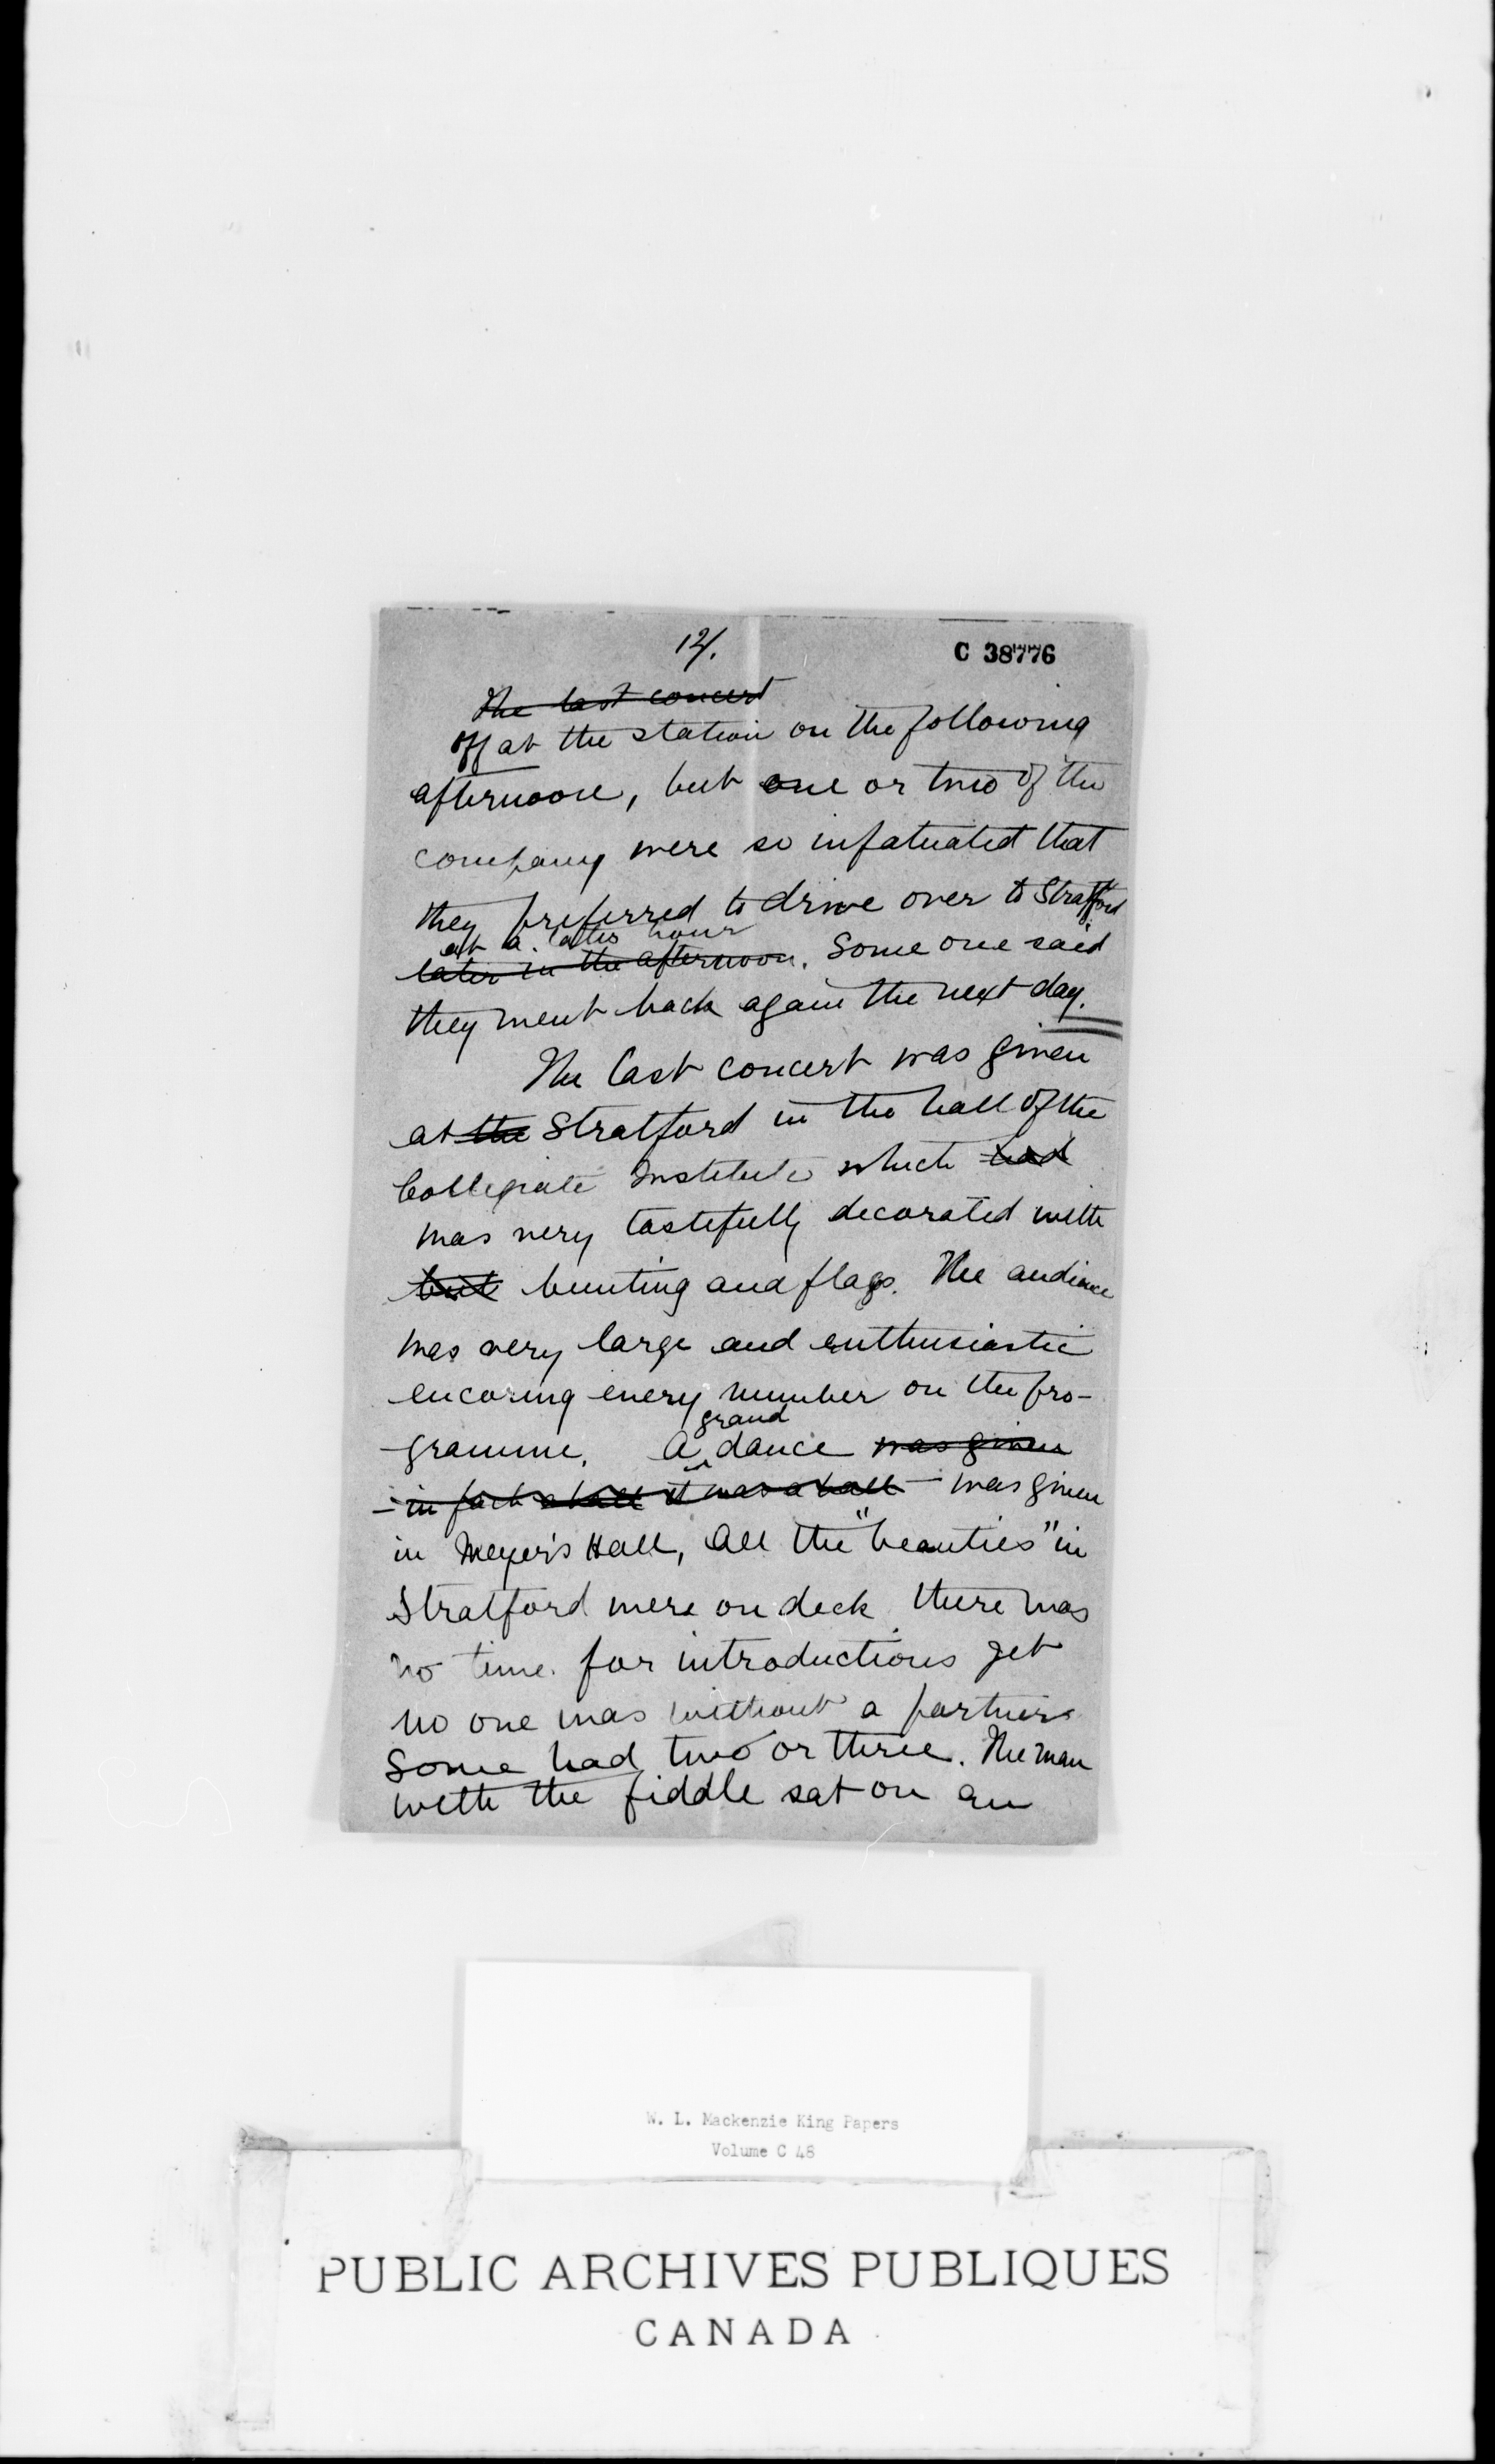 12/.
C 38776
The last concert
off at the station on the following
afternoon, but one or two of the
company were so infatuated that
they preferred to drive over to Stratford
at a later hour
later in the afternoon. Some one said
they went back again the next day.
The last concert was given
at the Stratford in the hall of the
Collegiate Institute which had
was very tastefully decorated with
but bunting and flags. The audience
was very large and enthusiastic
encoring every number on the pro-
gramme. A dance was given
grand
- in fact a ball it was a ball - was given
in Meyer's Hall, All the "beauties" in
Stratford were on deck. there was
no time for introductions yet
no one was without a partner
Some had two or three. The man
with the fiddle sat on an
W. L. Mackenzie King Papers
Volume C 48
PUBLIC ARCHIVES PUBLIQUES
CANADA